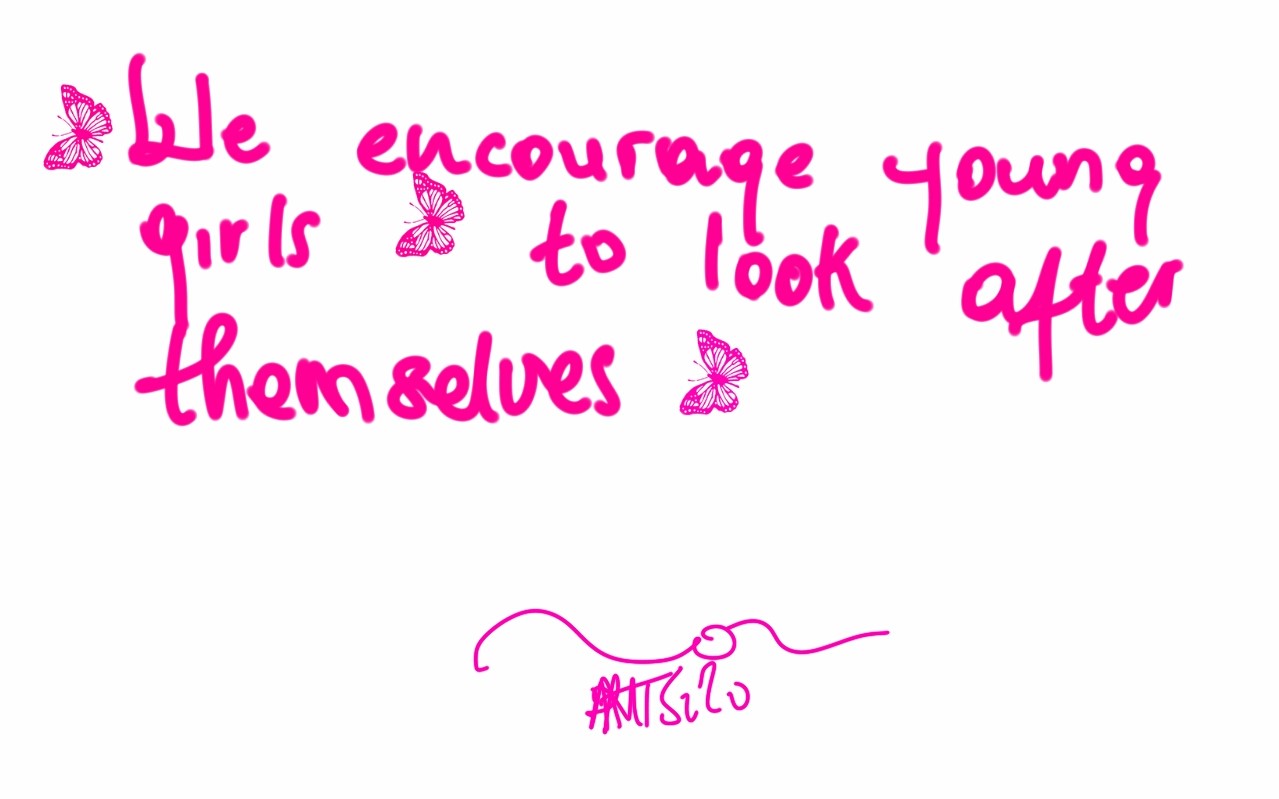 We encourage young
girls to look after
themselves